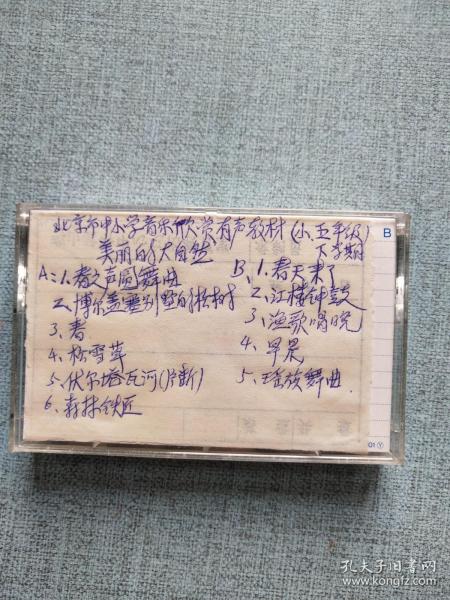 北京市中小学音乐欣赏有声教材(小五年级)
下学期
美丽的大自然
A:1.春之声圆舞曲
2.博尔盖塞别墅的松树
3、春
4、松雪草
5、伏尔塔瓦河(片断)
6、森林铁匠
B、1.春天来了
2、江楼钟鼓
3、渔歌唱晚
4、早晨
5、瑶族舞曲.
B
01 Y
孔夫子旧书网
www.kongfz.com